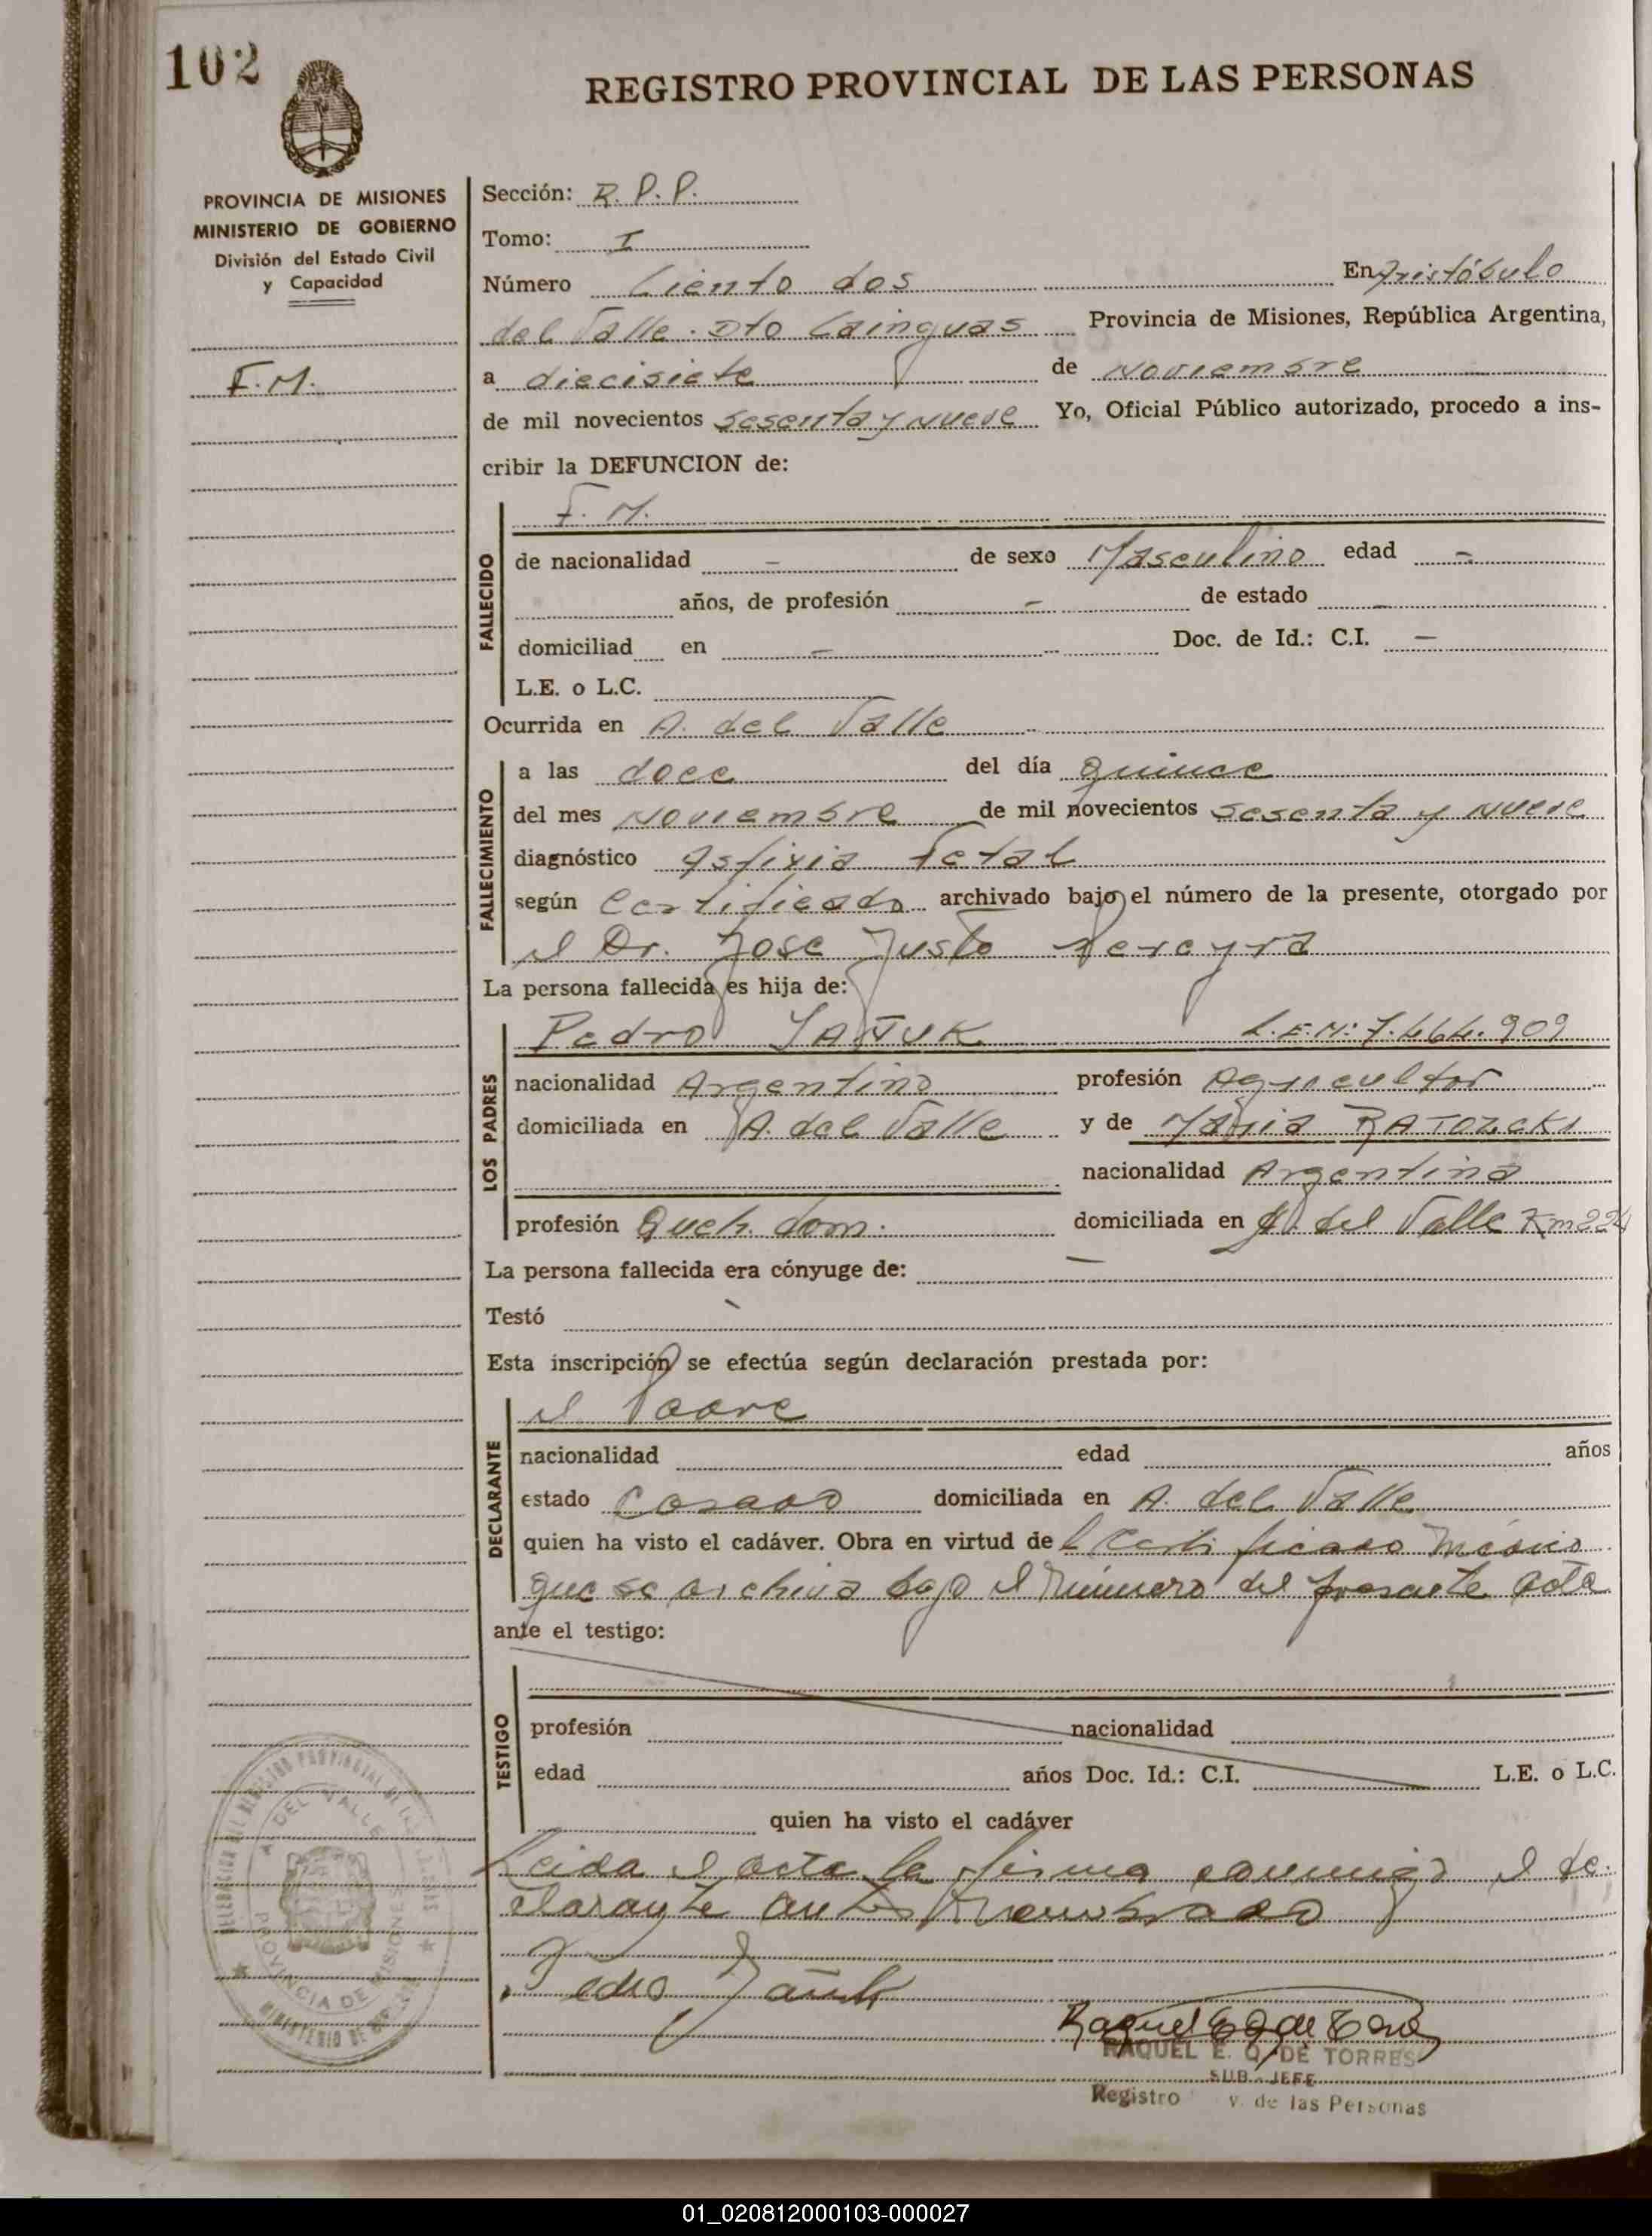 102
REGISTRO PROVINCIAL DE LAS PERSONAS
PROVINCIA DE MISIONES
MINISTERIO DE GOBIERNO
División del Estado Civil
y Capacidad
F. M.
Sección: R. P. P.
Tomo: I
Número Ciento dos En Aristóbulo
del Valle. Dto Cainguas Provincia de Misiones, República Argentina,
a diecisiete de Noviembre
de mil novecientos sesenta y nueve Yo, Oficial Público autorizado, procedo a ins-
cribir la DEFUNCION de:
FALLECIDO
F. M.
de nacionalidad - de sexo Masculino edad -
años, de profesión - de estado -
domiciliad en - Doc. de Id.: C.I. -
L.E. o L.C.
Ocurrida en A. del Valle
FALLECIMIENTO
a las doce del día quince
del mes Noviembre de mil novecientos sesenta y nueve
diagnóstico Asfixia Fetal
según Certificado archivado bajo el número de la presente, otorgado por
el Dr. Jose Justo Pereyra
La persona fallecida es hija de:
LOS PADRES
Pedro YAÑUK L.E.N: 7.464.909
nacionalidad Argentino profesión Agricultor
domiciliada en A. del Valle y de Maria RATOZCKI
nacionalidad Argentina
profesión Queh. dom. domiciliada en A. del Valle Km 224
La persona fallecida era cónyuge de: -
Testó
Esta inscripción se efectúa según declaración prestada por:
DECLARANTE
el Padre
nacionalidad edad años
estado Casado domiciliada en A. del Valle
quien ha visto el cadáver. Obra en virtud de l Certificado Médico
que se archiva bajo el Número del presente acta
ante el testigo:
TESTIGO
profesión nacionalidad
edad años Doc. Id.: C.I. L.E. o L.C.
quien ha visto el cadáver
Leida el acta la firma conmigo el de-
clarante antes nombrado
Pedro Yañuk
Raquel E Q de Torres
RAQUEL E. Q. DE TORRES
SUB-JEFE
Registro v. de las Personas
DELEGACION DEL REGISTRO PROVINCIAL DE LAS PERSONAS
A. DEL VALLE
PROVINCIA DE MISIONES
MINISTERIO DE GOBIERNO
01_020812000103-000027